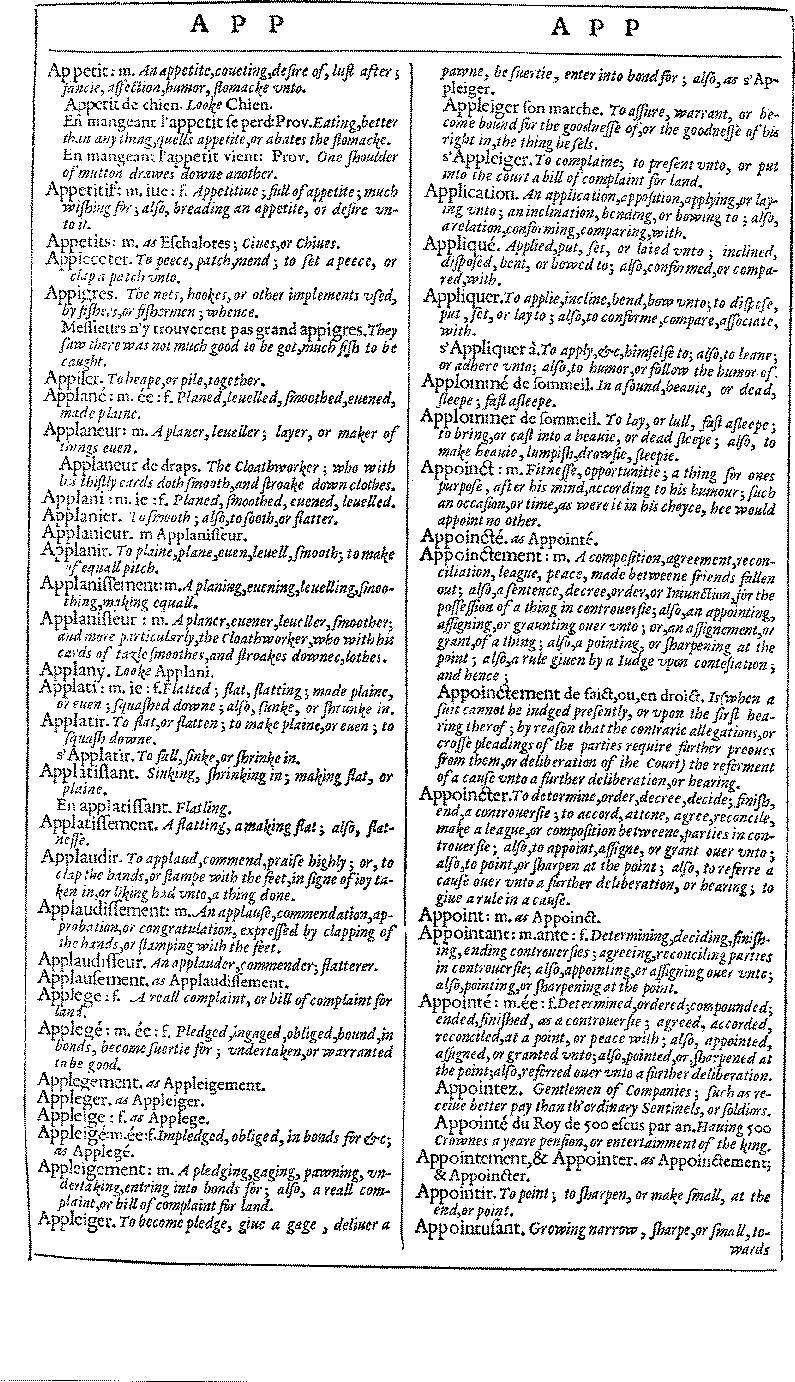 A P P
Appetit: m. An appetite, coueting, desire of, lust after;
fancie, affection, humor, stomacke vnto.
Appetit de chien. Looke Chien.
En mangeant l'appetit se perd: Prov. Eating, better
than any thing, quells appetite, or abates the stomacke.
En mangeant l'appetit vient: Prov. One shoulder
of mutton drawes downe another.
Appetitif: m. iue: f. Appetitiue; full of appetite; much
wishing for; also, breading an appetite, or desire vn-
to it.
Appetits: m. as Eschalotes; Ciues, or Chiues.
Appieceter. To peece, patch, mend; to set a peece, or
clap a patch vnto.
Appigres. The nets, hookes, or other implements vsed,
by fishers, or fishermen; whence.
Messieurs n'y trouverent pas grand appigres. They
saw there was not much good to be got, much fish to be
caught.
Appiler. To heape, or pile, together.
Applané: m. ée: f. Planed, leuelled, smoothed, euened,
made plaine.
Applaneur: m. A planer, leueller; layer, or maker of
things euen.
Applaneur de draps. The Cloathworker; who with
his thistly cards doth smooth, and stroake down clothes.
Applani: m. ie: f. Planed, smoothed, euened, leuelled.
Applanier. To smooth; also, to sooth, or flatter.
Applanieur. m Applanisseur.
Applanir. To plaine, plane, euen, leuell, smooth; to make
of equall pitch.
Applanissement: m. A planing, euening, leuelling, smoo-
thing, making equall.
Applanisseur: m. A planer, euener, leueller, smoother;
and more particularly, the Cloathworker, who with his
cards of tazle smoothes, and stroakes downe clothes.
Applany. Looke Applani.
Applati: m. ie: f. Flatted; flat, flatting; made plaine,
or euen; squashed downe; also, sunke, or shrunke in.
Applatir. To flat, or flatten; to make plaine, or euen; to
squash downe.
s'Applatir. To fall, sinke, or shrinke in.
Applatissant. Sinking, shrinking in; making flat, or
plaine.
En applatissant. Flatling.
Applatissement. A flatting, a making flat; also, flat-
nesse.
Applaudir. To applaud, commend, praise highly; or, to
clap the hands, or stampe with the feet, in signe of ioy ta-
ken in, or liking had vnto, a thing done.
Applaudissement: m. An applause, commendation, ap-
probation, or congratulation, expressed by clapping of
the hands, or stamping with the feet.
Applaudisseur. An applauder, commender; flatterer.
Applausement. as Applaudissement.
Applege: f. A reall complaint, or bill of complaint for
land.
Applegé: m. ée: f. Pledged, ingaged, obliged, bound, in
bonds, become suertie for; vndertaken, or warranted
to be good.
Applegement. as Appleigement.
Appleger. as Appleiger.
Appleige: f. as Applege.
Appleigé: m. ée: f. Impledged, obliged, in bonds for &c;
as Applegé.
Appleigement: m. A pledging, gaging, pawning, vn-
dertaking, entring into bonds for; also, a reall com-
plaint, or bill of complaint for land.
Appleiger. To become pledge, giue a gage, deliuer a
A P P
pawne, be suertie, enter into bond for; also, as s'Ap-
pleiger.
Appleiger son marche. To assure, warrant, or be-
come bound for the goodnesse of, or the goodnesse of his
right in, the thing he sels.
s'Appleiger. To complaine; to present vnto, or put
into the court a bill of complaint for land.
Application. An application, apposition, applying, or lay-
ing vnto; an inclination, bending, or bowing to; also,
a relation, conforming, comparing, with.
Appliqué. Applied, put, set, or laied vnto; inclined,
disposed, bent, or bowed to; also, conformed, or compa-
red, with.
Appliquer. To applie, incline, bend, bow vnto; to dispose,
put, set, or lay to; also, to conforme, compare, associate,
with.
s'Appliquer à. To apply, &c, himselfe to; also, to leane;
or adhere vnto; also, to humor, or follow the humor of.
Applommé de sommeil. In a sound, heauie, or dead,
sleepe; fast asleepe.
Applommer de sommeil. To lay, or lull, fast asleepe;
to bring, or cast into a heauie, or dead sleepe; also, to
make heauie, lumpish, drowsie, sleepie.
Appoinct: m. Fitnesse, opportunitie; a thing for ones
purpose, after his mind, according to his humour; such
an occasion, or time, as were it in his choyce, hee would
appoint no other.
Appoincté. as Appointé.
Appoinctement: m. A composition, agreement, recon-
ciliation, league, peace, made betweene friends fallen
out; also, a sentence, decree, order, or Iniunction, for the
possession of a thing in controuersie; also, an appointing,
assigning, or granting ouer vnto; or, an assignement, or
grant, of a thing; also, a pointing, or sharpening at the
point; also, a rule giuen by a Iudge vpon contestation;
and hence;
Appoinctement de faict, ou, en droict. Is (when a
suit cannot be iudged presently, or vpon the first hea-
ring therof; by reason that the contrarie allegations, or
crosse pleadings of the parties require further proous
from them, or deliberation of the Court) the referment
of a cause vnto a further deliberation, or hearing.
Appoincter. To determine, order, decree, decide; finish,
end, a controuersie; to accord, attone, agree, reconcile,
make a league, or composition betweene, parties in con-
trouersie; also, to appoint, assigne, or grant ouer vnto;
also, to point, or sharpen at the point; also, to referre a
cause ouer vnto a further deliberation, or hearing; to
giue a rule in a cause.
Appoint: m. as Appoinct.
Appointant: m. ante: f. Determining, deciding, finish-
ing, ending controuersies; agreeing, reconciling parties
in controuersie; also, appointing, or assigning ouer vnto;
also, pointing, or sharpening at the point.
Appointé: m. ée: f. Determined, ordered; compounded;
ended, finished, as a controuersie; agreed, accorded,
reconciled, at a point, or peace with; also, appointed,
assigned, or granted vnto; also, pointed, or sharpened at
the point; also, referred ouer vnto a further deliberation.
Appointez. Gentlemen of Companies; such as re-
ceiue better pay than th'ordinary Sentinels, or soldiors.
Appointé du Roy de 500 escus par an. Hauing 500
Crownes a yeare pension, or entertainment of the king.
Appointement, & Appointer. as Appoinctement;
& Appoincter.
Appointir. To point; to sharpen, or make small, at the
end, or point.
Appointusant. Growing narrow, sharpe, or small, to-
wards